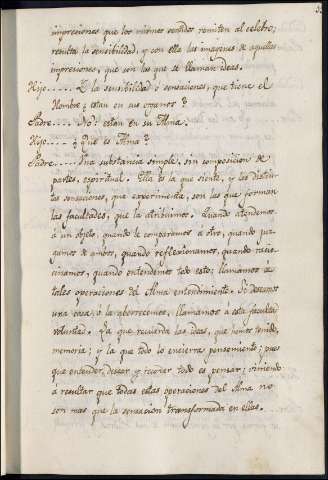 impresiones que los mismos sentidos remiten al celebro,
resulta la sensibilidad, y con ella las imagenes de aquellas
impresiones, que son las que se llaman ideas.
Hijo..... Y la sensibilidad ó sensaciones, que tiene el
Hombre ¿estan en sus organos?
Padre.... No: estan en su Alma.
Hijo..... ¿Que es Alma?
Padre.... Una substancia simple, sin composicion de
partes, espiritual. Ella es la que siente, y las distin-
tas sensaciones, que experimenta, son las que forman
las facultades, que la atribuimos. Quando atendemos
á un objeto, quando le comparamos á otro, quando juz-
gamos de ambos, quando reflexionamos, quando racio-
cinamos, quando entendemos todo esto; llamamos á
tales operaciones del Alma entendimiento. Si deseamos
una cosa, ó la aborrecemos, llamamos á esta facultad
voluntad. La que recuerda las ideas, que hemos tenido,
memoria; y la que todo lo encierra pensamiento; pues
que entender, desear y recordar todo es pensar; viniendo
á resultar que todas estas operaciones del Alma no
son mas que la sensacion transformada en ellas.